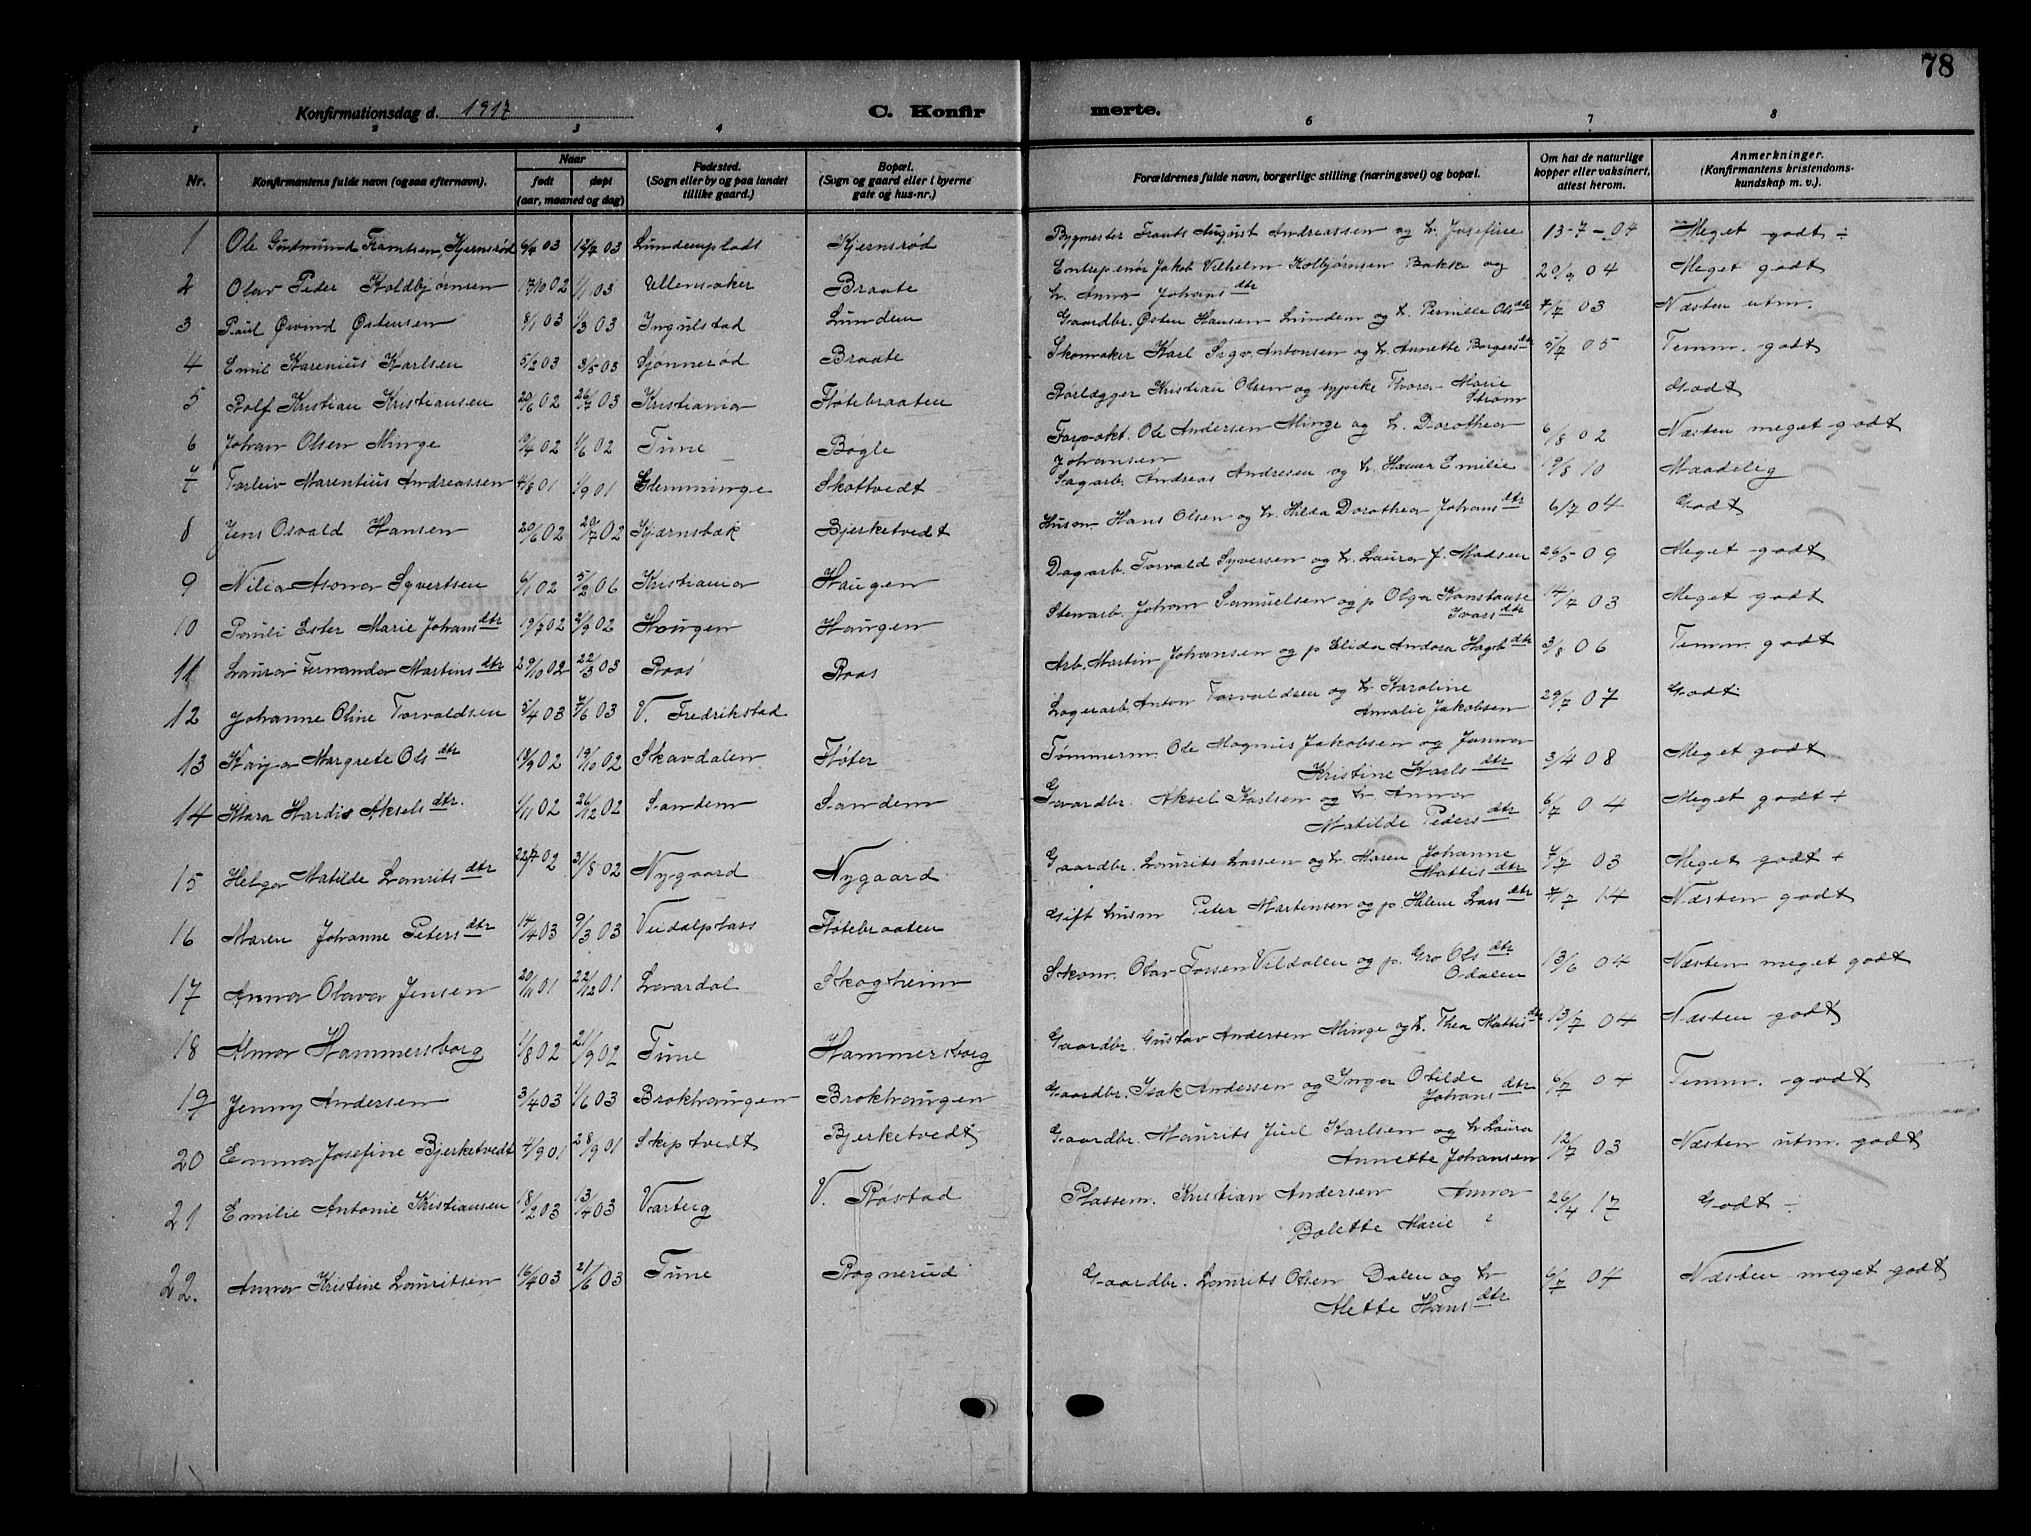 78
Konfirmationsdag d. 1917
C. Konfirmerte.
1 2 3 4 6 7 8
Nr. Konfirmantens fulde navn (ogsaa efternavn). Naar født døpt (aar, maaned og dag) Fødested. (Sogn eller by og paa landet tillike gaard.) Bopæl. (Sogn og gaard eller i byerne gate og hus-nr.) Forældrenes fulde navn, borgerlige stilling (næringsvei) og bopæl. Om hat de naturlige kopper eller vaksinert, attest herom. Anmerkninger. (Konfirmantens kristendomskundskap m. v.).
1 Ole Gudmund Frantsen Kjernsrød 6/4 03 12/7 03 Lundemplads Kjernsrød Bygmester Frants August Andreassen og h. Josefine 13-7-04 Meget godt ÷
2 Olav Peder Koldbjørnsen 17/10 02 1/1 03 Ullensaker Braate Entrepenør Jakob Vilhelm Kolbjørnsen Bakke og 29/9 04 Meget godt
h. Anna Johansdtr
3 Paul Øivind Østensen 8/1 03 1/3 03 Ingulstad Lundem Gaardbr. Østen Hansen Lundem og h. Pernille Olsdtr 7/7 03 Næsten utm.
4 Emil Karenius Karlsen 5/2 03 3/5 03 Sjønnerød Braate Skomaker Karl Sigv. Antonsen og h. Annette Borgersdtr 5/7 05 Temm. godt
5 Rolf Kristian Kristiansen 20/6 02 26/7 03 Kristiania Fløtebraaten Rørlægger Kristian Olsen og sypike Thora Marie Strøm Godt
6 Johan Olsen Minge 19/4 02 1/6 02 Tune Bøgle Forpakt. Ole Andersen Minge og h. Dorothea 6/8 02 Næsten meget godt
Johansen
7 Torleiv Marentius Andreassen 4/8 01 1/9 01 Glemminge Skottvedt Sagarb. Andreas Andresen og h. Hanna Emilie 19/8 10 Maadelig
8 Jens Osvald Hansen 20/6 02 20/7 02 Kjærnsbæk Bjerketvedt Husm. Hans Olsen og h. Hilda Dorothea Johansdtr 6/7 04 Godt
9 Nilia Asona Syvertsen 6/1 02 5/2 06 Kristiania Haugen Dagarb. Torvald Syversen og h. Laura J. Madsen 26/5 09 Meget godt
10 Pauli Ester Marie Johansdtr 19/7 02 21/9 02 Haugen Haugen Stenarb. Johan Samuelsen og p Olga Konstanse Ivarsdtr 14/7 03 Meget godt
11 Laura Fernanda Martinsdtr 29/10 02 22/3 03 Roos Roos Arb. Martin Johansen og p Elida Andora Hagb.dtr 3/8 06 Temm. godt
12 Johanne Oline Torvaldsen 5/4 03 7/6 03 V. Fredrikstad Lagerarb. Anton Torvaldsen og h Karoline Amalie Jakobsen 29/7 07 Godt
13 Kaija Margrete Olsdtr 18/9 02 19/10 02 Skavdalen Fløter Tømmerm. Ole Magnus Jakobsen og Janna Kristine Karlsdtr 3/4 08 Meget godt
14 Klara Hardis Akselsdtr. 1/11 02 26/12 02 Sandem Sandem Gaardbr. Aksel Karlsen og h Anna Matilde Pedersdtr 6/7 04 Meget godt +
15 Helga Matilde Lauritsdtr 22/7 02 31/8 02 Nygaard Nygaard Gaardbr. Laurits Lassen og h. Maren Johanne Mattisdtr 7/7 03 Meget godt +
16 Maren Johanne Petersdtr 14/4 03 9/3 03 Veidalplass Fløtebraaten Gift husm Peter Martensen og p. Helene Larsdtr 7/7 14 Næsten godt
17 Anna Olava Jensen 20/11 01 22/12 01 Lavardal Skogheim Skom. Olav Tossen Vildalen og p. Gro Olsdtr Odalen 13/6 04 Næsten meget godt
18 Alma Hammersborg 1/8 02 21/9 02 Tune Hammersborg Gaardbr. Gustav Andersen Minge og h. Thea Mattisdtr 13/7 04 Næsten godt
19 Jenny Andersen 3/4 03 1/6 03 Brokhaugen Brokhaugen Gaardbr. Isak Andersen og Inga Otilde Johansdtr 6/7 04 Temm. godt
20 Emma Josefine Bjerketvedt 4/9 01 28/9 01 Skiptvedt Bjerketvedt Gaardbr. Maurits Juel Karlsen og h Laura Annette Johansen 12/7 03 Næsten utm. godt
21 Emilie Antonie Kristiansen 18/2 03 13/4 03 Varteig V. Røstad Plassem. Kristian Andersen Anna Bolette Marie ? 26/4 17 Godt ÷
22. Anna Kristine Lauritsen 16/4 03 21/6 03 Tune Rognerud Gaardbr. Laurits Olsen Dalen og h Mette Hansdtr 6/7 04 Næsten meget godt